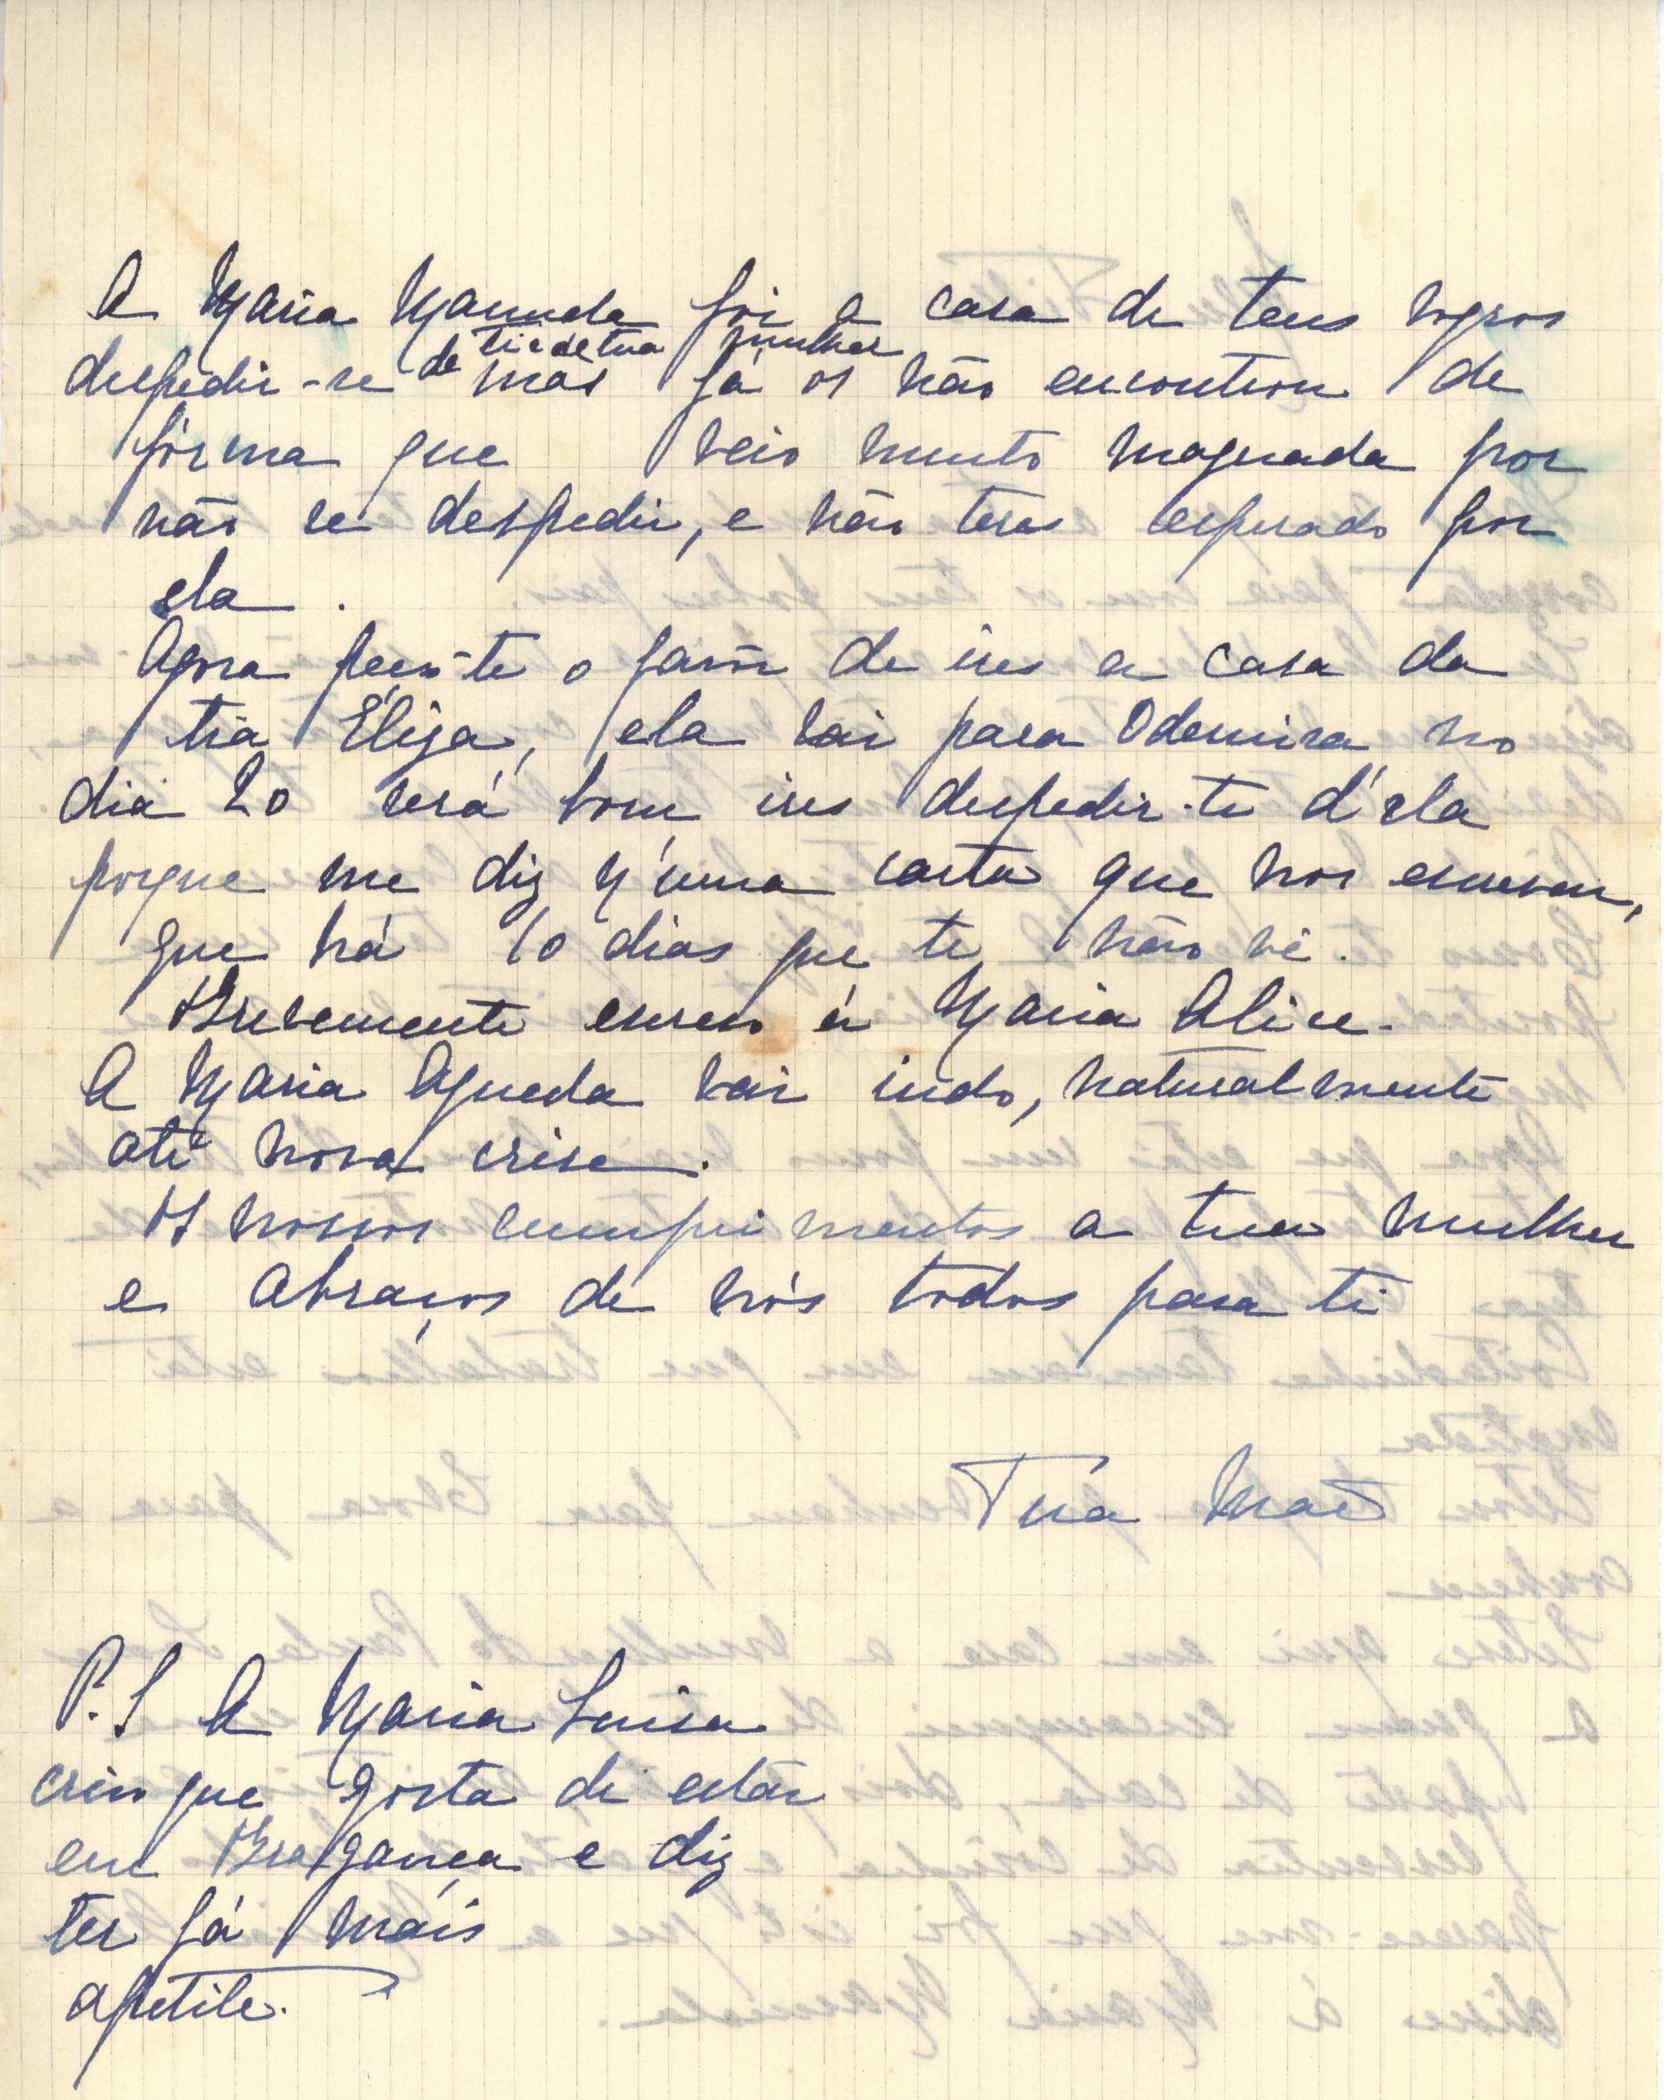 A Maria Manuela foi a casa de teus sogros
despedir-se de ti e de tua mulher mas já os não encontrou de
fórma que veio muito maguada por
não se despedir, e não teres esperado por
ela.
Agora peço-te o favôr de ires a casa da
tia Eliza, ela vai para Odemira no
dia 20 será bom ires despedir-te d'ela
porque me diz n'uma carta que nos escreveu,
que há 10 dias que te não vê.
Brevemente escrevo á Maria Alice.
A Maria Agueda vai indo, naturalmente
até nova crise.
Os nossos cumprimentos a tua mulher
e abraços de nós todos para ti
Tua Mãe
P.S A Maria Luisa
creio que gosta de estár
em Bragança e diz
ter já máis
apetite.